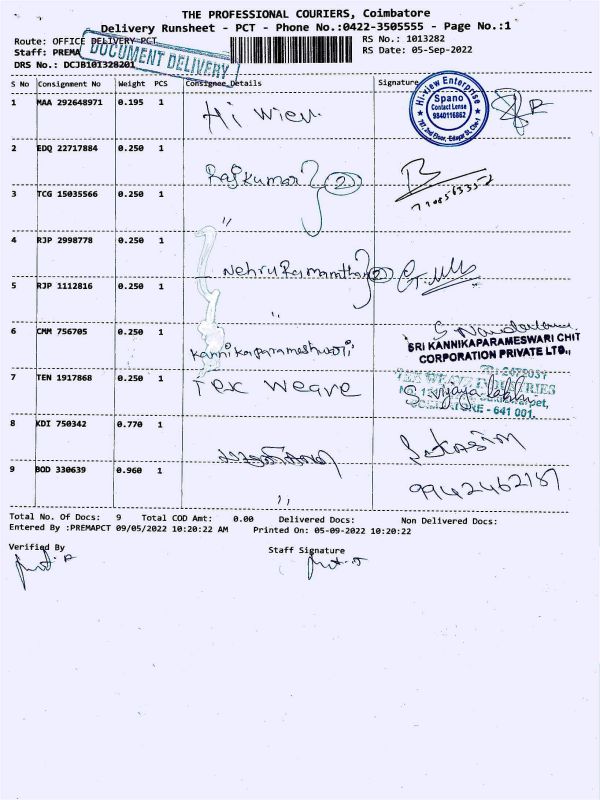 THE PROFESSIONAL COURIERS, Coimbatore
Delivery Runsheet - PCT - Phone No.:0422-3505555 - Page No.:1
Route: OFFICE DELIVERY PCT
RS No.: 1013282
Staff: PREMA
RS Date: 05-Sep-2022
DRS No.: DCJB101328201
DOCUMENT DELIVERY
S No Consignment No Weight PCS Consignee Details Signature
1 MAA 292648971 0.195 1 Hi View
Hi-view Enterprise
Spano
Contact Lense
9840116862
2 EDQ 22717884 0.250 1 Rajkumar 2
3 TCG 15035566 0.250 1 "
4 RJP 2998778 0.250 1 Nehru 2
5 RJP 1112816 0.250 1 "
6 CMM 756705 0.250 1 Kannikaparameshwari
SRI KANNIKAPARAMESWARI CHIT
CORPORATION PRIVATE LTD.,
7 TEN 1917868 0.250 1 Tex Weave
TEX WEAVE INDUSTRIES
- 641 001.
8 KDI 750342 0.770 1
9 BOD 330639 0.960 1 "
9942462187
Total No. Of Docs: 9 Total COD Amt: 0.00 Delivered Docs: Non Delivered Docs:
Entered By :PREMAPCT 09/05/2022 10:20:22 AM Printed On: 05-09-2022 10:20:22
Verified By Staff Signature